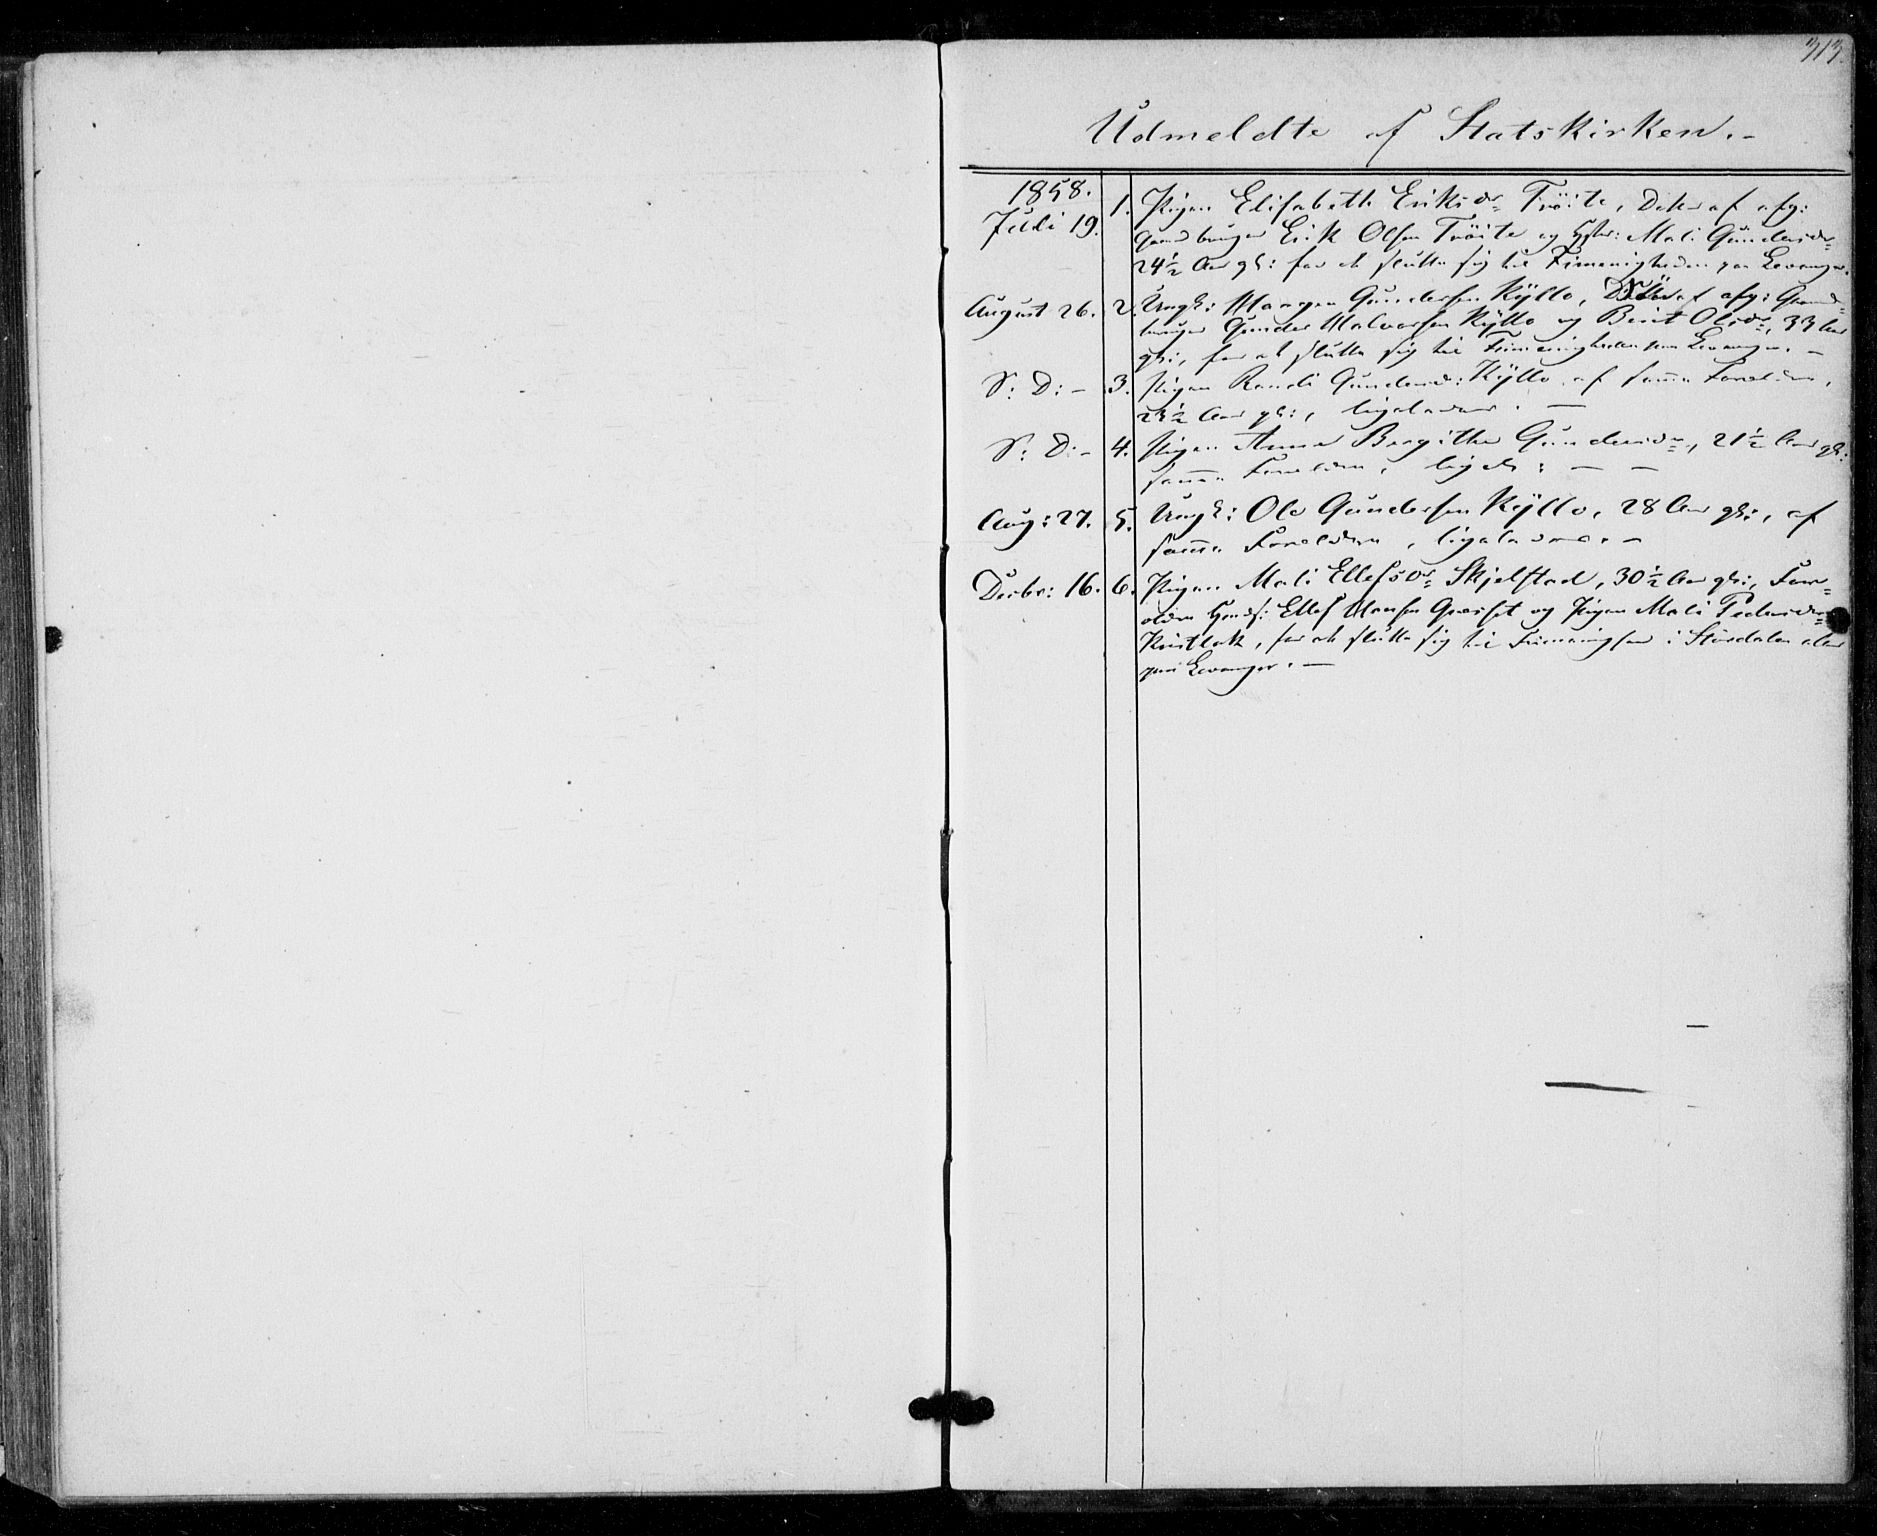 313.
Udmeldte af Statskirken.-
1858.
Juli 19. 1. Pigen Elisabeth Eriksdr Tröite, Dtter af afg:
Gaardbruger Erik Olsen Tröite og Hstr: Mali Gundersdr
24½ Aar gl: for at slutte sig til Frimenigheden paa Levanger.
August 26. 2. Ungk: Haagen Gundersen Kyllo, Sön af afg: Gaard-
bruger Gunder Halvorsen Kyllo og Berit Olsdr, 33 Aar
gl:, for at slutte sig til Frimenigheden paa Levanger. -
S: D: - 3. Pigen Randi Gundersd: Kyllo af samme Forældre,
23½ Aar gl:, ligeledes. -
S: D: - 4. Pigen Anne Bergithe Gundersdr, 21½ Aar gl:
samme Forældre, ligel: - -
Aug: 27. 5. Ungk: Ole Gundersen Kyllo, 28 Aar gl:, af
samme Forældre, ligeledes. -
Decbr: 16. 6. Pigen Mali Ellefsdr Skjelstad, 30½ Aar gl:, For-
ældre Ellef Hansen og Pigen Mali Pedersdr
for at slutte sig til i Stördalen eller
paa Levanger. -